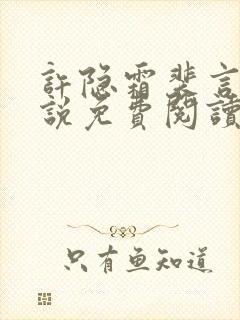 許隐霜裴言
説免費閱讀
只有鱼知道